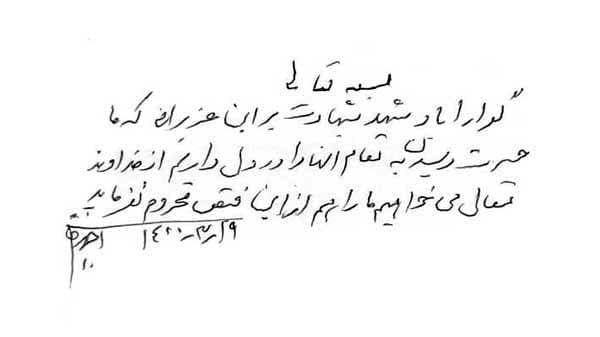 بسمه تعالی
گوارا باد شهد شهادت بر این عزیزان که ما
حسرت رسیدن به مقام آنها را در دل داریم از خداوند
متعال می خواهیم ما را هم از این فیض محروم نفرماید
۱۴۰۰/۳/۲۹
۱۰